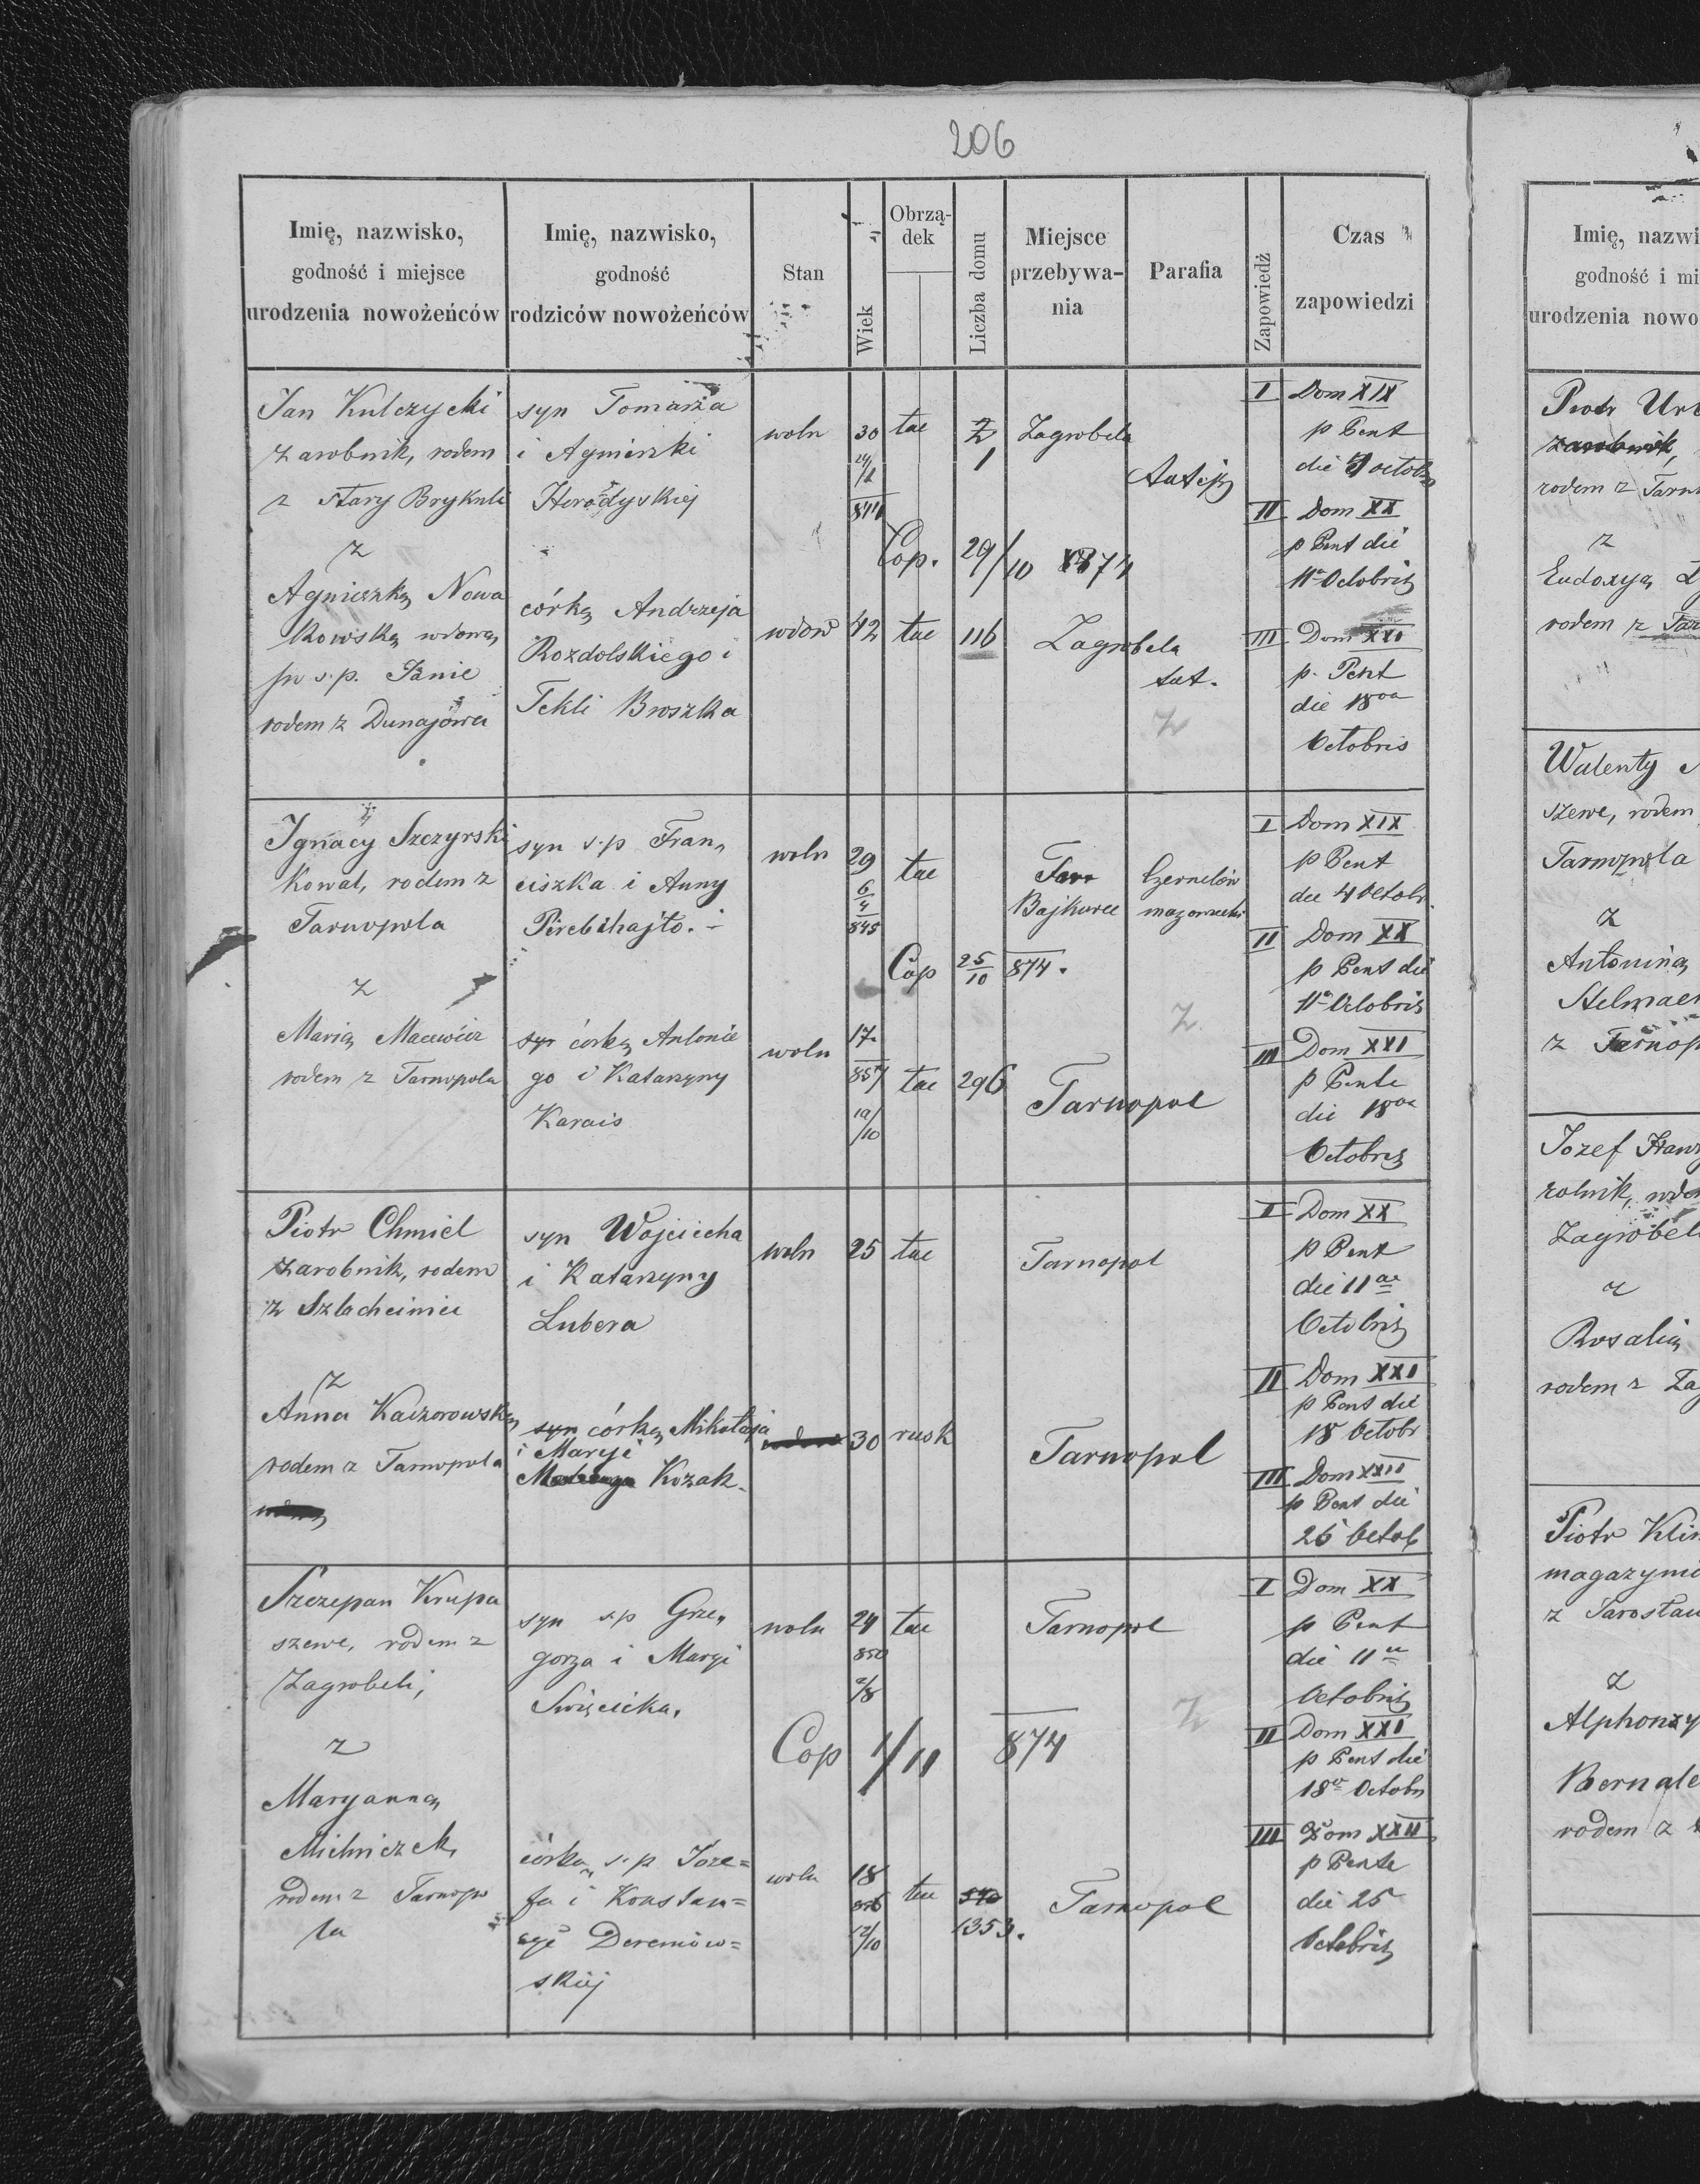 206
Imię, nazwisko,
godność i miejsce
urodzenia nowożeńców
Imię, nazwisko,
godność
rodziców nowożeńców
Stan
Wiek
Obrzą-
dek
Liczba domu
Miejsce
przebywa-
nia
Parafia
Zapowiedź
Czas
zapowiedzi
Jan Kulczycki
zarobnik, rodem
z Stary Brykuli
z
Agnieszką Nowa
kowską wdową
po s.p. Janie
rodem z Dunajowa
syn Tomasza
i Agnieszki
Horodyskiej
córką Andrzeja
Rozdolskiego i
Tekli Broszka
woln
30
844
tac
1
Zagrobela
tutejsz
Cop. 29/10 874
wdow
42
tac
116
Zagrobela
tut.
z
I Dom XIX
p Pent
die 4 octobr
II Dom XX
p Pent die
11a Octobris
III Dom XXI
p. Pent
die 18oa
Octobris
Ignacy Szczyrski
Kowal, rodem z
Tarnopola
z
Marią Macewicz
rodem z Tarnopola
syn s.p Fran,
ciszka i Anny
syn córką Antonie
go i Katarzyny
Karais
woln
29
6
4
845
tac
Tarn
Bajkowce
Czernelów
mazowiecki
Cop 25/10 874.
z
woln
17.
857
19/10
tac
296
Tarnopol
I Dom XIX
p Pent
die 4 Octobr.
II Dom XX
p Pent die
11a Octobris
III Dom XXI
p Pente
die 18oa
Octobris
Piotr Chmiel
zarobnik, rodem
z Szlachciniec
z
Anna Kaczorowską
rodem z Tarnopola
syn Wojciecha
i Katarzyny
Lubera
syn córką Mikołaja
i Maryi
Kozak.
woln
25
tac
Tarnopol
30
rusk
Tarnopol
I Dom XX
p Pent
die 11ae
Octobris
II Dom XXI
p Pent die
18 Octobr
III Dom XXII
p Pent die
25 Octob
Szczepan Krupa
szewc, rodem z
Zagrobeli,
z
Maryanną
Michniczek,
rodem z Tarnopo
la
syn s.p Grze,
gorza i Maryi
Swięcicka,
córką s.p Joze=
fa i Konstan=
cyi Deremiow=
skiej
woln
24
850
2/8
tac
Tarnopol
Cop 1/11 874
z
woln
18
856
12/10
tac
1353.
Tarnopol
I Dom XX
p Pent
die 11ae
Octobris
II Dom XXI
p Pent die
18a Octobr
III Dom XXII
p Pente
die 25
Octobris
Imię, nazwi
godność i mi
urodzenia nowo
Piotr Urb
zarobnik,
rodem z Tarn
z
Eudoxyą
rodem z Tar
Walenty
szewc, rodem
Tarnopola
z
Antoniną
Stelmach
z Tarnop
Jozef
rolnik, wdo
Zagrobel
z
Rosalią
rodem z Zag
Piotr Klim
magazynie
z Jarosław
z
Alphonzy
Bernale
rodem z